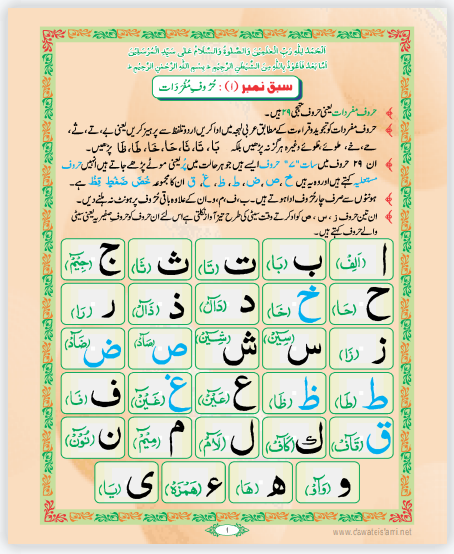 اَلْحَمْدُ لِلّٰهِ رَبِّ الْعٰلَمِيْنَ وَالصَّلٰوةُ وَالسَّلَامُ عَلٰى سَيِّدِ الْمُرْسَلِيْنَ
اَمَّا بَعْدُ فَاَعُوْذُ بِاللّٰهِ مِنَ الشَّيْطٰنِ الرَّجِيْمِ ؕ بِسْمِ اللّٰهِ الرَّحْمٰنِ الرَّحِيْمِ ؕ
سبق نمبر (۱) : حُرُوفِ مُفْرَدَات
حروف مفردات یعنی حروف تہجی ۲۹ ہیں۔
حروف مفردات کو تجوید و قراءت کے مطابق عربی لہجہ میں ادا کریں اردو تلفظ سے پرہیز کریں یعنی بے، تے، ثے،
حے، خے، طوئے، ظوئے وغیرہ ہرگز نہ پڑھیں بلکہ بَا، تَا، ثَا، حَا، خَا، طَا، ظَا پڑھیں۔
ان ۲۹ حروف میں سات "۷" حروف ایسے ہیں جو ہر حالت میں پُر یعنی موٹے پڑھے جاتے ہیں انہیں حروف
مستعلیہ کہتے ہیں اور وہ یہ ہیں خ، ص، ض، ط، ظ، غ، ق ان کا مجموعہ خُصَّ ضَغْطٍ قِظْ ہے۔
ہونٹوں سے صرف چار حروف ادا ہوتے ہیں۔ ب، ف، م، و۔ ان کے علاوہ باقی حروف پر ہونٹ نہ ہلنے دیں۔
ان تین حروف ز، س، ص کو ادا کرتے وقت سیٹی کی طرح تیز آواز نکلتی ہے اس لئے ان حروف کو حروف صفیریہ یعنی سیٹی
والے حروف کہتے ہیں۔
ا (اَلِفْ) ب (بَا) ت (تَا) ث (ثَا) ج (جِيْمْ)
ح (حَا) خ (خَا) د (دَالْ) ذ (ذَالْ) ر (رَا)
ز (زَا) س (سِيْنْ) ش (شِيْنْ) ص (صَادْ) ض (ضَادْ)
ط (طَا) ظ (ظَا) ع (عَيْنْ) غ (غَيْنْ) ف (فَا)
ق (قَافْ) ك (كَافْ) ل (لَامْ) م (مِيْمْ) ن (نُوْنْ)
و (وَاوْ) ھ (هَا) ء (هَمْزَهْ) ی (يَا)
۱
www.dawateislami.net